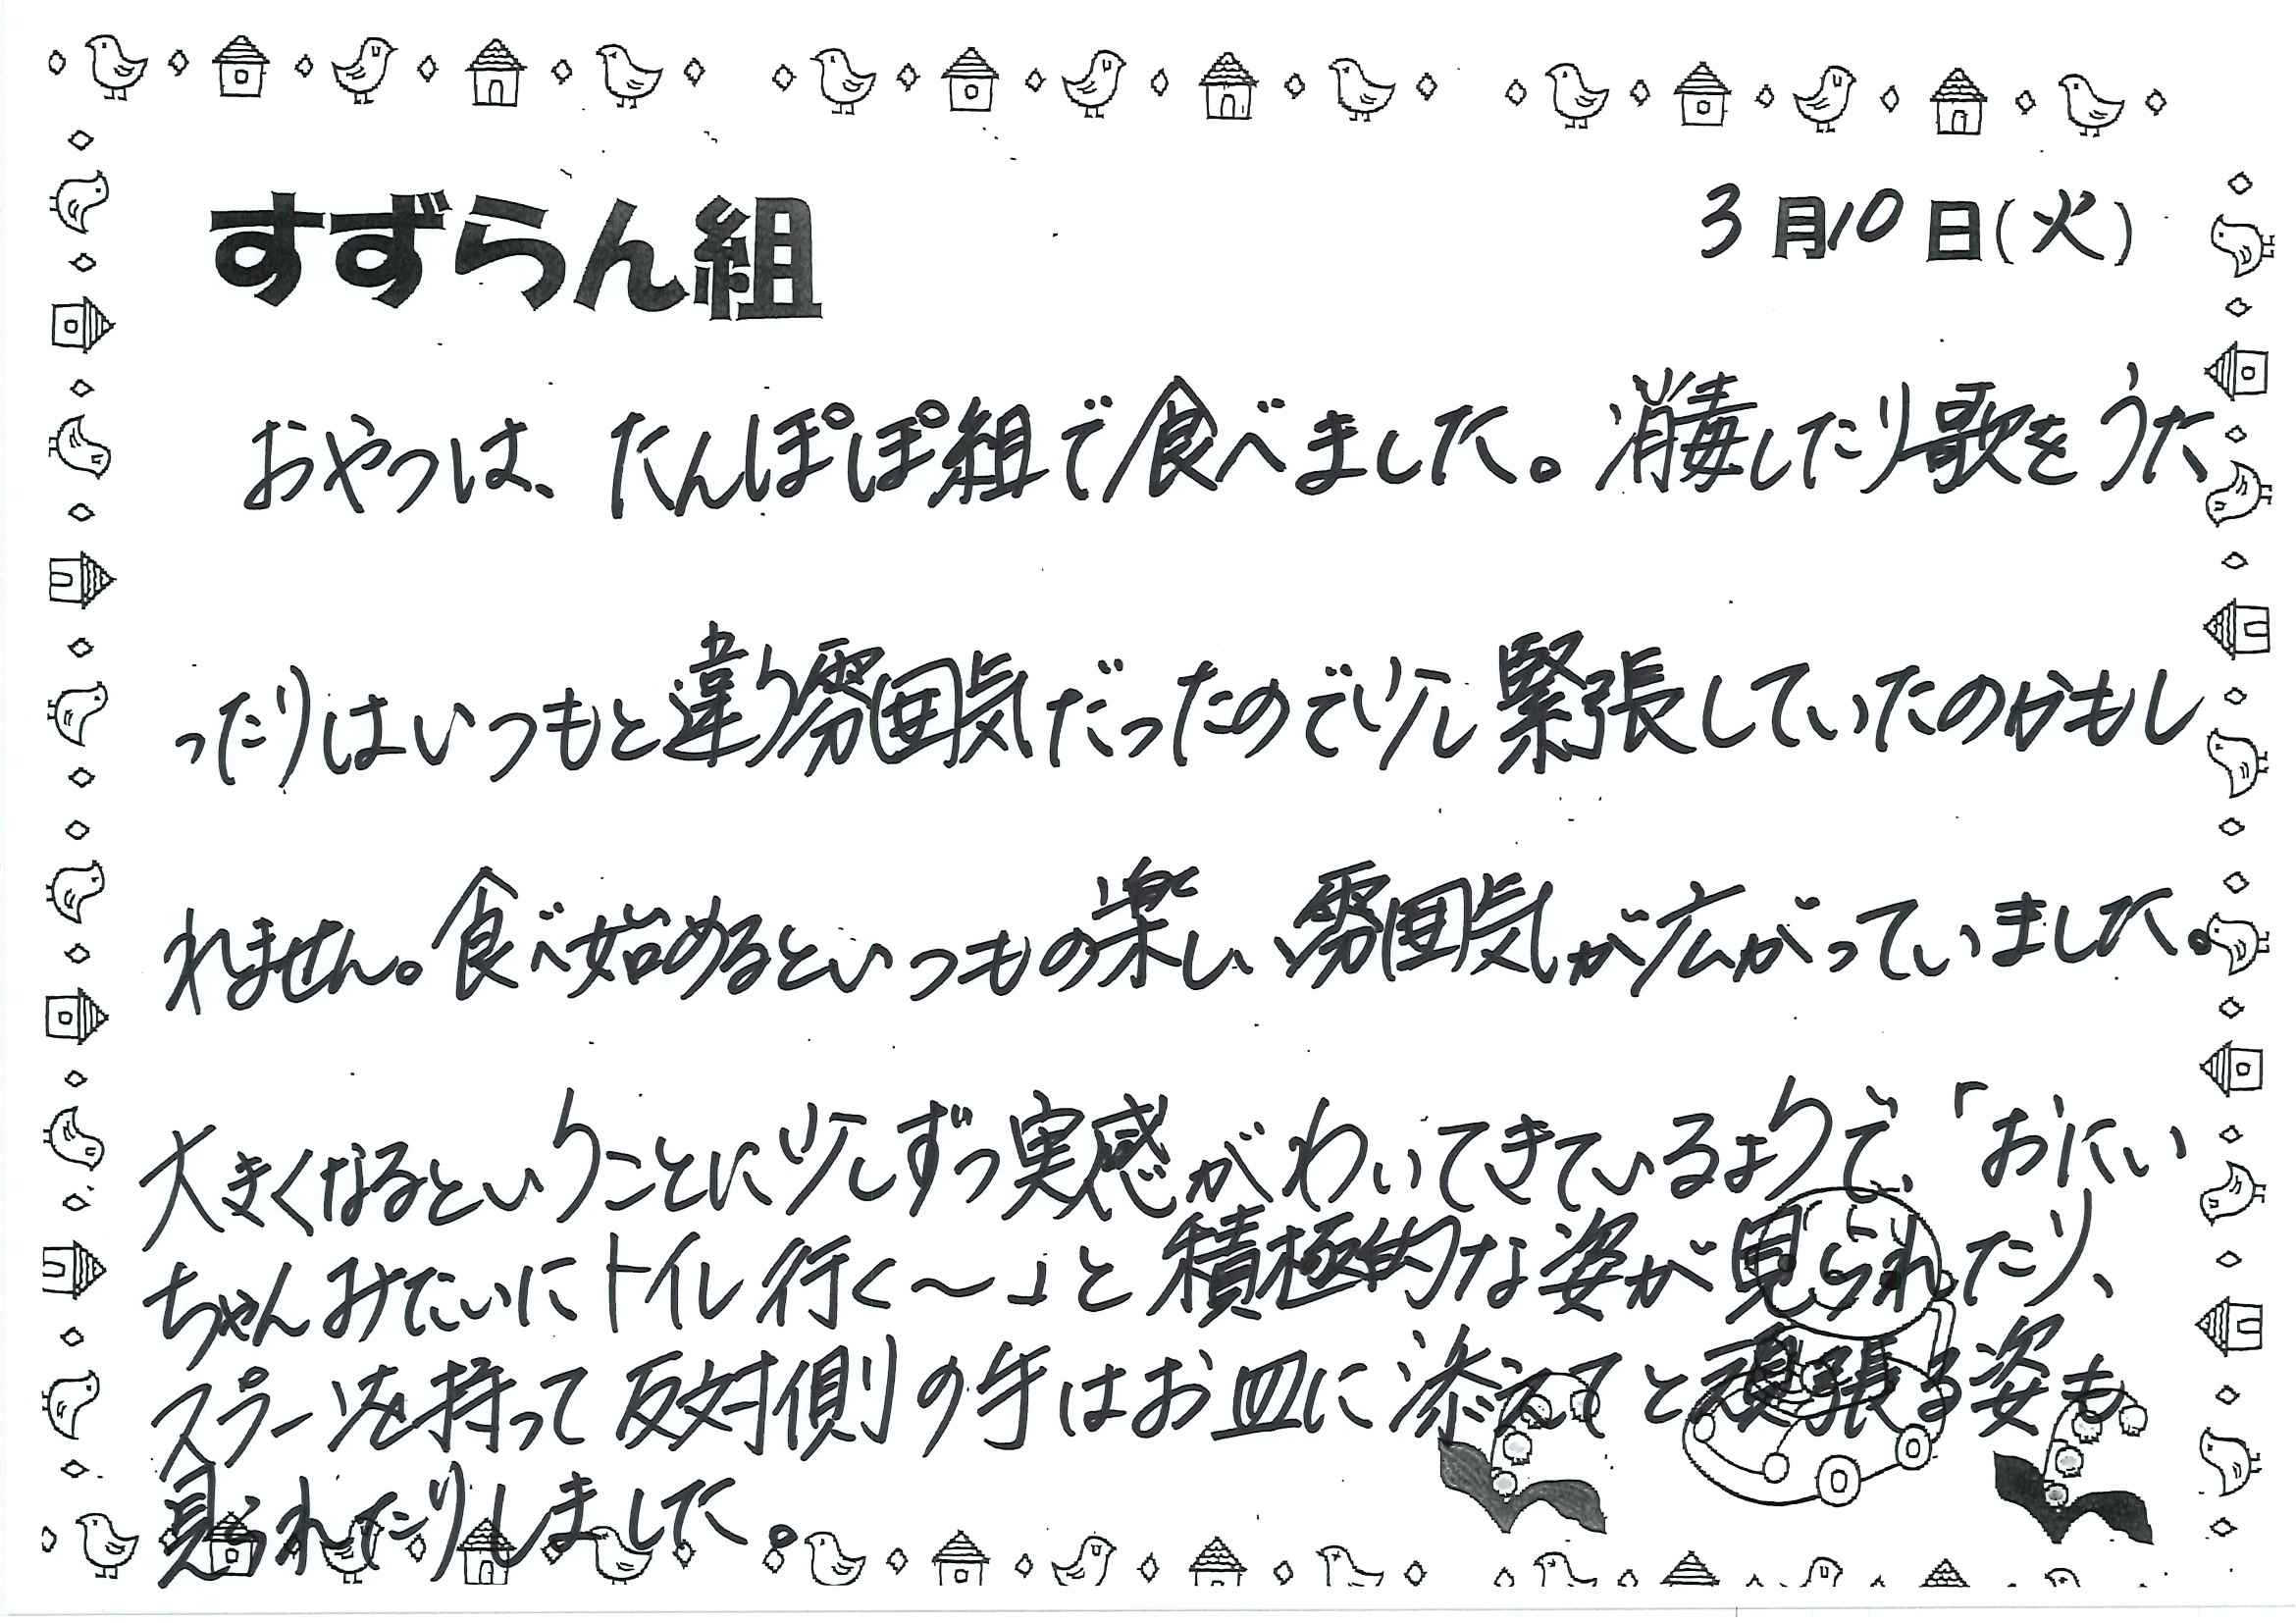 すずらん組
3月10日(火)
おやつは、たんぽぽ組で食べました。消毒したり歌をうた
ったりはいつもと違う雰囲気だったので少し緊張していたのかもし
れません。食べ始めるといつもの楽しい雰囲気が広がっていました。
大きくなるということに少しずつ実感がわいてきているようで、「おにい
ちゃんみたいにトイレ行く～」と積極的な姿が見られたり、
スプーンを持って反対側の手はお皿に添えてと頑張る姿も
見られたりしました。